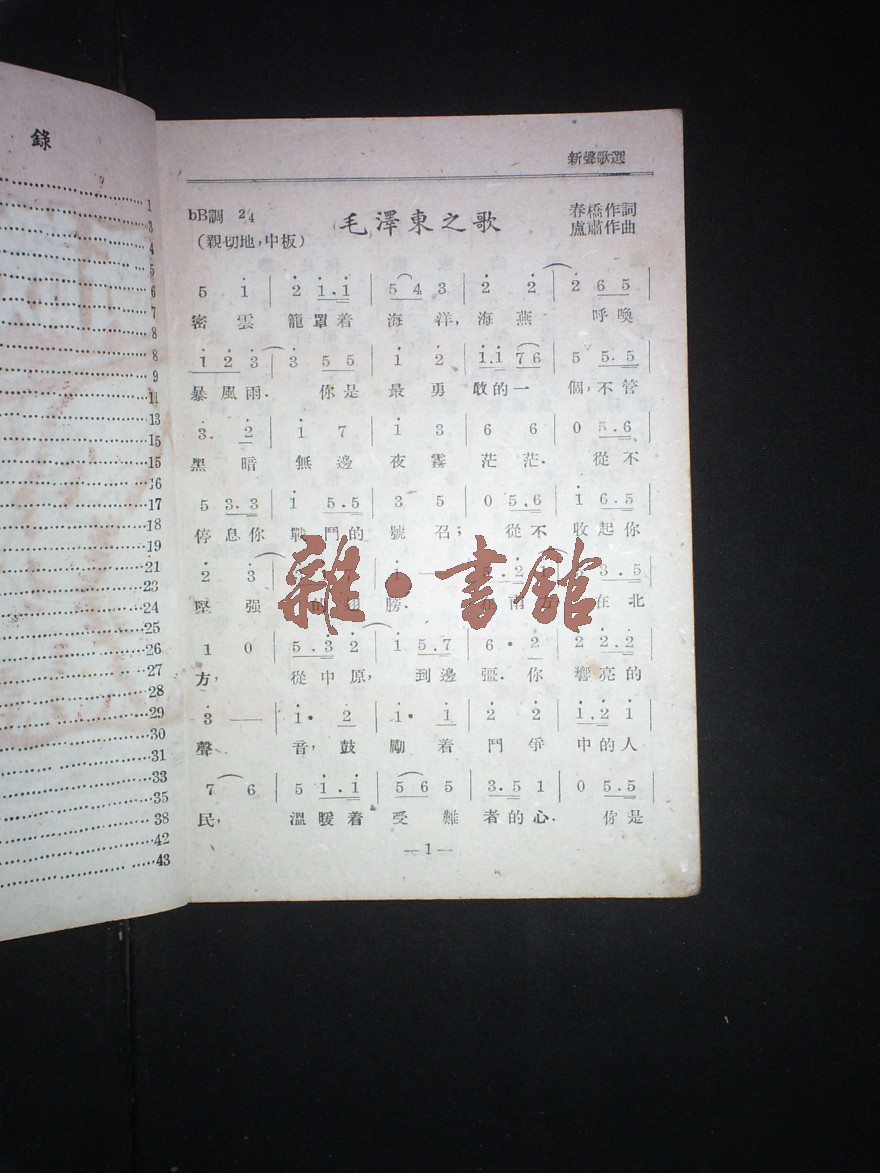 錄
1
3
4
5
6
7
8
8
9
11
13
15
15
16
17
18
19
21
23
24
25
26
27
28
29
30
31
33
35
38
42
43
新聲歌選
bB調 2/4
(親切地,中板)
毛澤東之歌
春橋作詞
盧肅作曲
5 1 | 2 1.1 | 5 4 3 | 2 2 | 2 6 5 |
密雲 籠罩着 海洋,海燕 呼喚
1 2 3 | 3 5 5 | 1 2 | 1.1 76 | 5 5.5 |
暴風雨. 你是 最勇 敢的一 個,不管
3. 2 | 1 7 | 1 3 | 6 6 | 0 5.6 |
黑暗 無邊 夜霧 茫茫. 從不
5 3.3 | 1 5.5 | 3 5 | 0 5.6 | 1 6.5 |
停息你 戰鬥的 號召; 從不 收起你
2 3 | 1 — 3.5 |
堅强 翅膀. 南方 在北
1 0 | 5.3 2 | 1 5.7 | 6. 2 | 2 2.2 |
方, 從中原, 到邊疆.你 響亮的
3 — | 1. 2 | 1. 1 | 2 2 | 1.2 1 |
聲 音,鼓 勵着 鬥爭 中的人
7 6 | 5 1.1 | 5 6 5 | 3.5 1 | 0 5.5 |
民, 溫暖着 受難 者的心. 你是
—1—
雜·書館